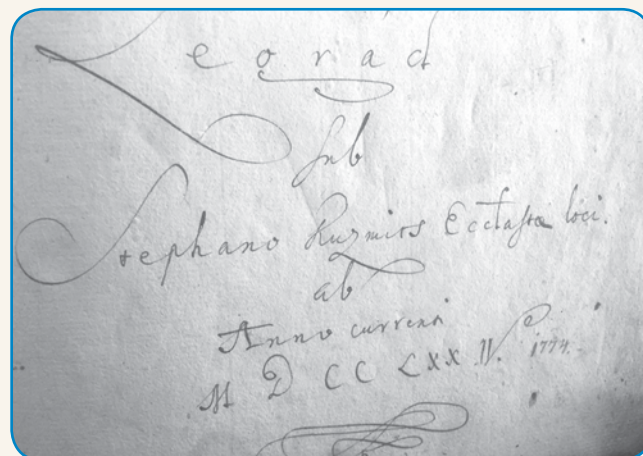 Legrad
sub
Stephano Kuzmics Eccłastæ loci.
ab
Anno currenti
M D CC LXX IV. 1774.